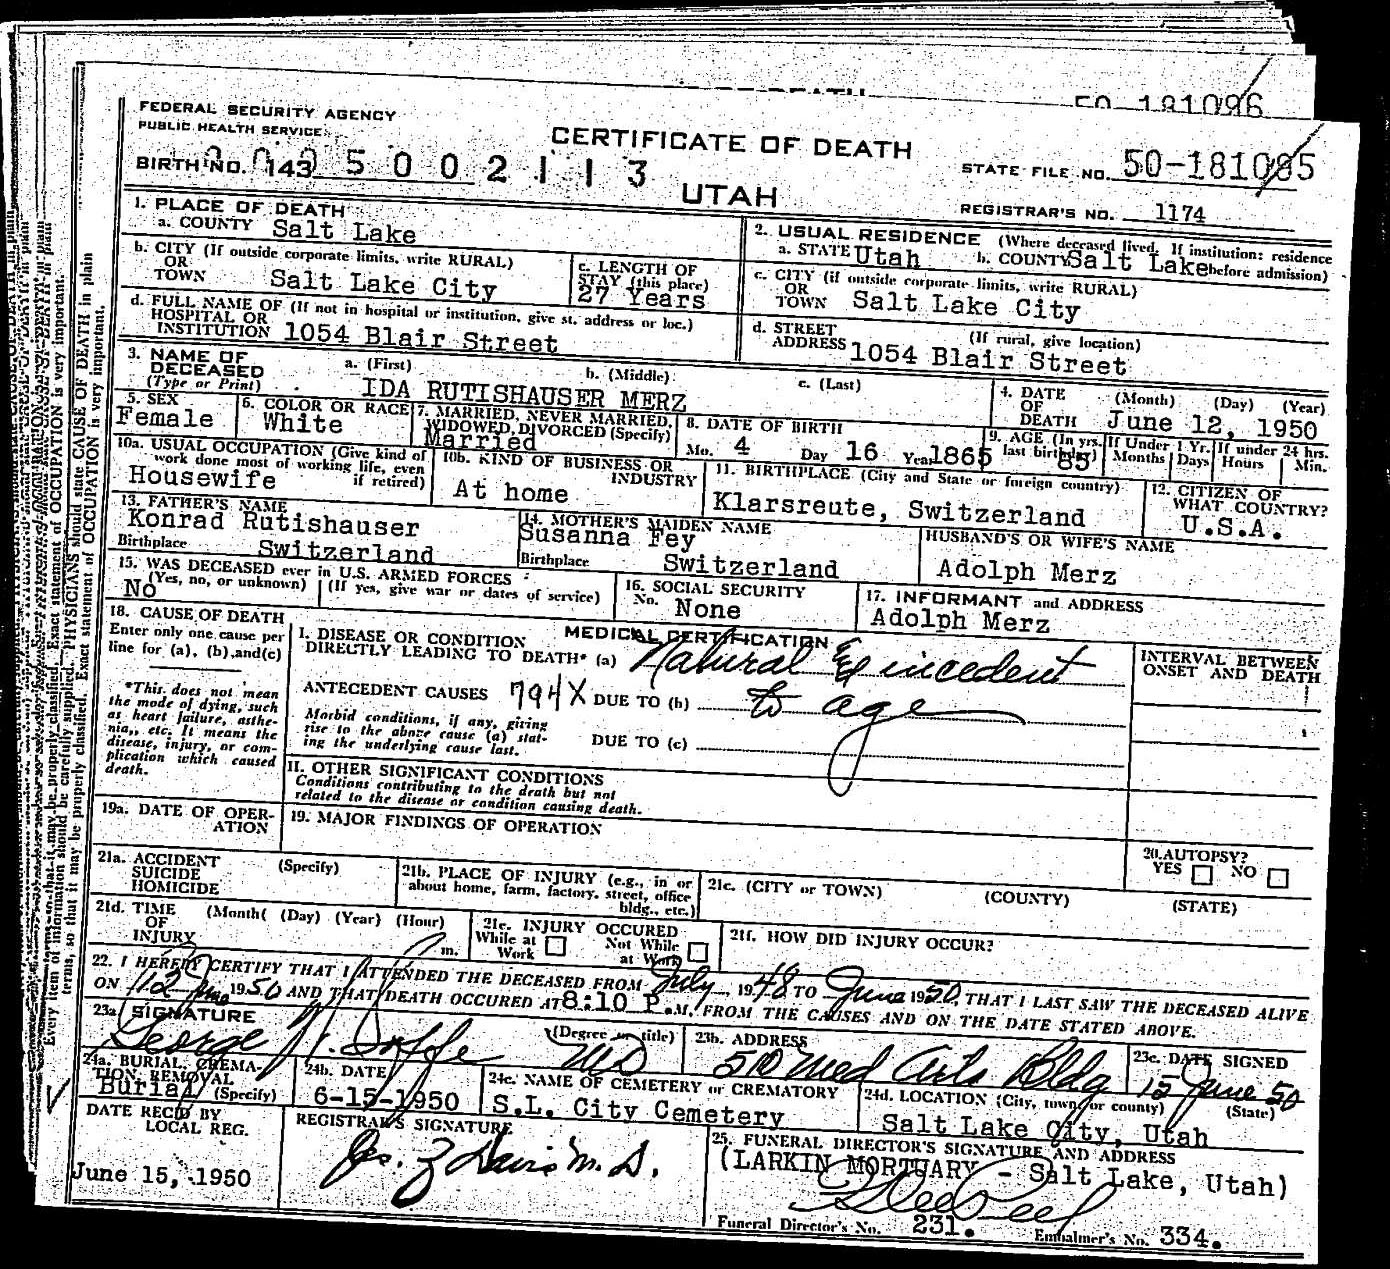 50-181096
FEDERAL SECURITY AGENCY
PUBLIC HEALTH SERVICE
CERTIFICATE OF DEATH
BIRTH NO. 143 5 0 0 2 1 1 3
UTAH
STATE FILE NO. 50-181095
REGISTRAR'S NO. 1174
1. PLACE OF DEATH
a. COUNTY Salt Lake
b. CITY (If outside corporate limits, write RURAL)
OR
TOWN Salt Lake City
c. LENGTH OF
STAY (this place)
27 Years
d. FULL NAME OF (If not in hospital or institution, give st. address or loc.)
HOSPITAL OR
INSTITUTION 1054 Blair Street
2. USUAL RESIDENCE (Where deceased lived. If institution: residence
a. STATE Utah b. COUNTY Salt Lake before admission)
c. CITY (if outside corporate limits, write RURAL)
OR
TOWN Salt Lake City
d. STREET (If rural, give location)
ADDRESS 1054 Blair Street
3. NAME OF
DECEASED
(Type or Print)
a. (First) b. (Middle) c. (Last)
IDA RUTISHAUSER MERZ
4. DATE (Month) (Day) (Year)
OF
DEATH June 12, 1950
5. SEX
Female
6. COLOR OR RACE
White
7. MARRIED, NEVER MARRIED,
WIDOWED, DIVORCED (Specify)
Married
8. DATE OF BIRTH
Mo. 4 Day 16 Year 1865
9. AGE (In yrs.
last birthday) 85
If Under 1 Yr.
Months Days
If under 24 hrs.
Hours Min.
10a. USUAL OCCUPATION (Give kind of
work done most of working life, even
if retired)
Housewife
10b. KIND OF BUSINESS OR
INDUSTRY
At home
11. BIRTHPLACE (City and State or foreign country)
Klarsreute, Switzerland
12. CITIZEN OF
WHAT COUNTRY?
U.S.A.
13. FATHER'S NAME
Konrad Rutishauser
Birthplace Switzerland
14. MOTHER'S MAIDEN NAME
Susanna Fey
Birthplace Switzerland
HUSBAND'S OR WIFE'S NAME
Adolph Merz
15. WAS DECEASED ever in U.S. ARMED FORCES
(Yes, no, or unknown) (If yes, give war or dates of service)
No
16. SOCIAL SECURITY
No. None
17. INFORMANT and ADDRESS
Adolph Merz
18. CAUSE OF DEATH
Enter only one cause per
line for (a), (b), and (c)
*This does not mean
the mode of dying, such
as heart failure, asthe-
nia, etc. It means the
disease, injury, or com-
plication which caused
death.
MEDICAL CERTIFICATION
I. DISEASE OR CONDITION
DIRECTLY LEADING TO DEATH* (a) Natural
ANTECEDENT CAUSES 794X DUE TO (b) to age
Morbid conditions, if any, giving
rise to the above cause (a) stat-
ing the underlying cause last.
DUE TO (c)
II. OTHER SIGNIFICANT CONDITIONS
Conditions contributing to the death but not
related to the disease or condition causing death.
INTERVAL BETWEEN
ONSET AND DEATH
19a. DATE OF OPER-
ATION
19. MAJOR FINDINGS OF OPERATION
20. AUTOPSY?
YES NO
21a. ACCIDENT (Specify)
SUICIDE
HOMICIDE
21b. PLACE OF INJURY (e.g., in or
about home, farm, factory, street, office
bldg., etc.)
21c. (CITY or TOWN) (COUNTY) (STATE)
21d. TIME (Month( (Day) (Year) (Hour)
OF
INJURY m.
21e. INJURY OCCURED
While at Work Not While at Work
21f. HOW DID INJURY OCCUR?
22. I HEREBY CERTIFY THAT I ATTENDED THE DECEASED FROM July, 1948 TO June 1950, THAT I LAST SAW THE DECEASED ALIVE
ON 12 June 1950 AND THAT DEATH OCCURED AT 8:10 P.M. FROM THE CAUSES AND ON THE DATE STATED ABOVE.
23a. SIGNATURE (Degree or title)
George MD
23b. ADDRESS
510 Med Arts Bldg
23c. DATE SIGNED
15 June 50
24a. BURIAL, CREMA-
TION, REMOVAL
Burial (Specify)
24b. DATE
6-15-1950
24c. NAME OF CEMETERY or CREMATORY
S.L. City Cemetery
24d. LOCATION (City, town, or county) (State)
Salt Lake City, Utah
DATE REC'D BY
LOCAL REG.
June 15, 1950
REGISTRAR'S SIGNATURE
Jas. Z Davis M.D.
25. FUNERAL DIRECTOR'S SIGNATURE AND ADDRESS
(LARKIN MORTUARY - Salt Lake, Utah)
Funeral Director's No. 231. Embalmer's No. 334.
Every item of information should be carefully supplied. PHYSICIANS should state CAUSE OF DEATH in plain
terms, so that it may be properly classified. Exact statement of OCCUPATION is very important.